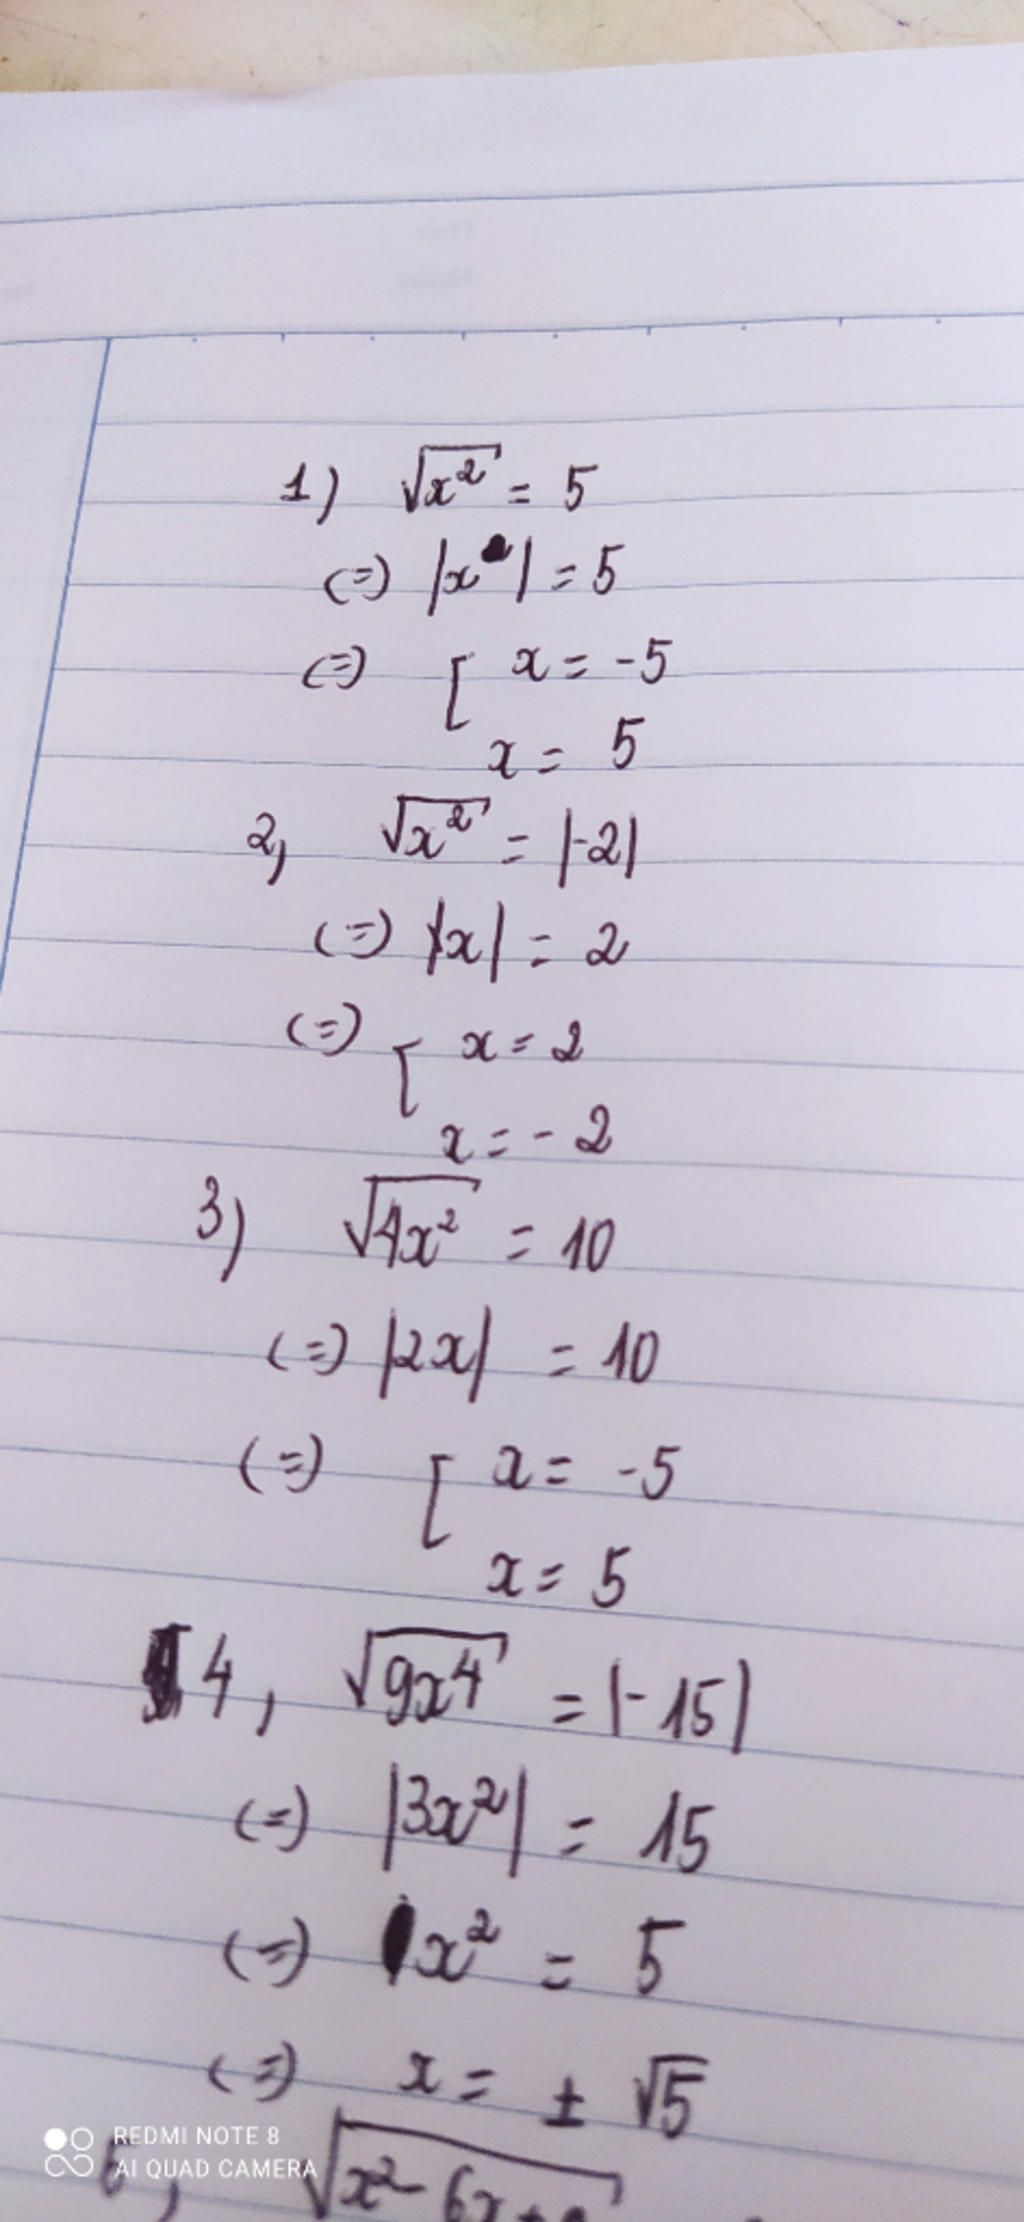 1) √x² = 5
(=) |x| = 5
(=) [ x = -5
x = 5
2, √x² = |-2|
(=) |x| = 2
(=) [ x = 2
x = - 2
3) √4x² = 10
(=) |2x| = 10
(=) [ x = -5
x = 5
4, √9x⁴ = |-15|
(=) |3x²| = 15
(=) x² = 5
(=) x = ± √5
√x² - 6x +
REDMI NOTE 8
AI QUAD CAMERA